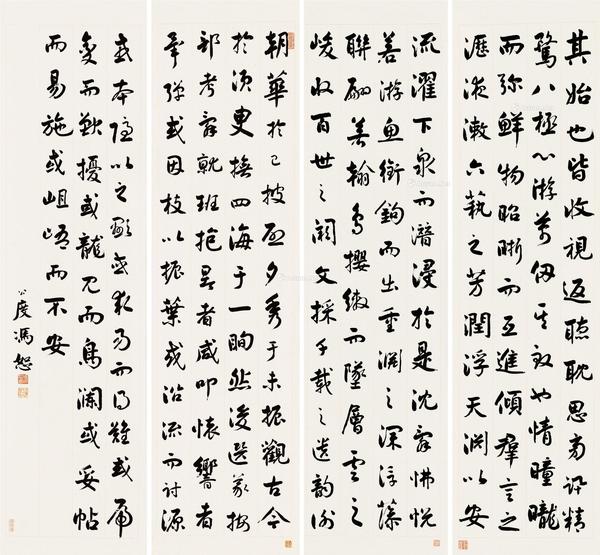 其始也皆收視返聽耽思旁訊精
騖八極心游萬仞其致也情曈曨
而彌鮮物昭晰而互進傾羣言之
瀝液漱六藝之芳潤浮天淵以安
流濯下泉而潛浸於是沈辭怫悅
若游魚銜鉤而出重淵之深浮藻
聯翩若翰鳥攖繳而墜層雲之
峻收百世之闕文採千載之遺韻謝
朝華於已披啟夕秀于未振觀古今
於須臾撫四海于一瞬然後選義按
部考辭就班抱景者咸叩懷響者
畢彈或因枝以振葉或沿流而討源
或本隱以之顯或求易而得難或虎
變而獸擾或龍見而鳥瀾或妥帖
而易施或岨峿而不安
公度馮恕